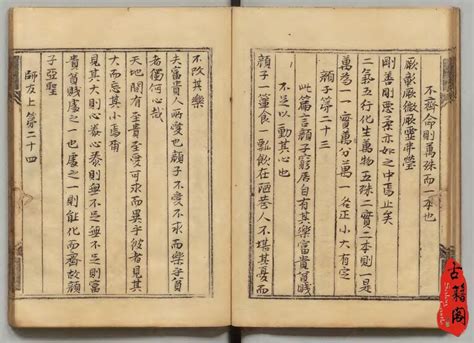 不齊命則萬殊而一本也
厥彰厥微厥靈弗瑩
剛善剛惡柔亦如之中焉止矣
二氣五行化生萬物五殊二實二本則一是
萬為一一實萬分萬一各正小大有定
顏子第二十三
此篇言顏子窮居自有其樂富貴貧賤
不足以動其心也
顏子一簞食一瓢飲在陋巷人不堪其憂而
不改其樂
夫富貴人所愛也顏子不愛不求而樂乎貧
者獨何心哉
天地間有至貴至愛可求而異乎彼者見其
大而忘其小焉爾
見其大則心泰心泰則無不足無不足則富
貴貧賤處之一也處之一則能化而齊故顏
子亞聖
師友上第二十四
古籍阁